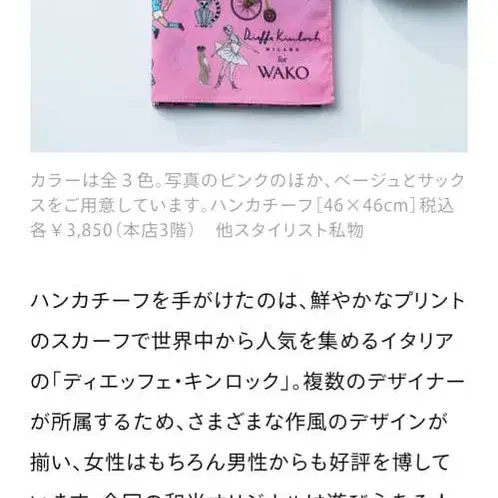 Dieffe Kinloch
MILANO
for
WAKO
カラーは全３色。写真のピンクのほか、ベージュとサック
スをご用意しています。ハンカチーフ［46×46cm］税込
各￥3,850（本店3階）　他スタイリスト私物
ハンカチーフを手がけたのは、鮮やかなプリント
のスカーフで世界中から人気を集めるイタリア
の「ディエッフェ・キンロック」。複数のデザイナー
が所属するため、さまざまな作風のデザインが
揃い、女性はもちろん男性からも好評を博して